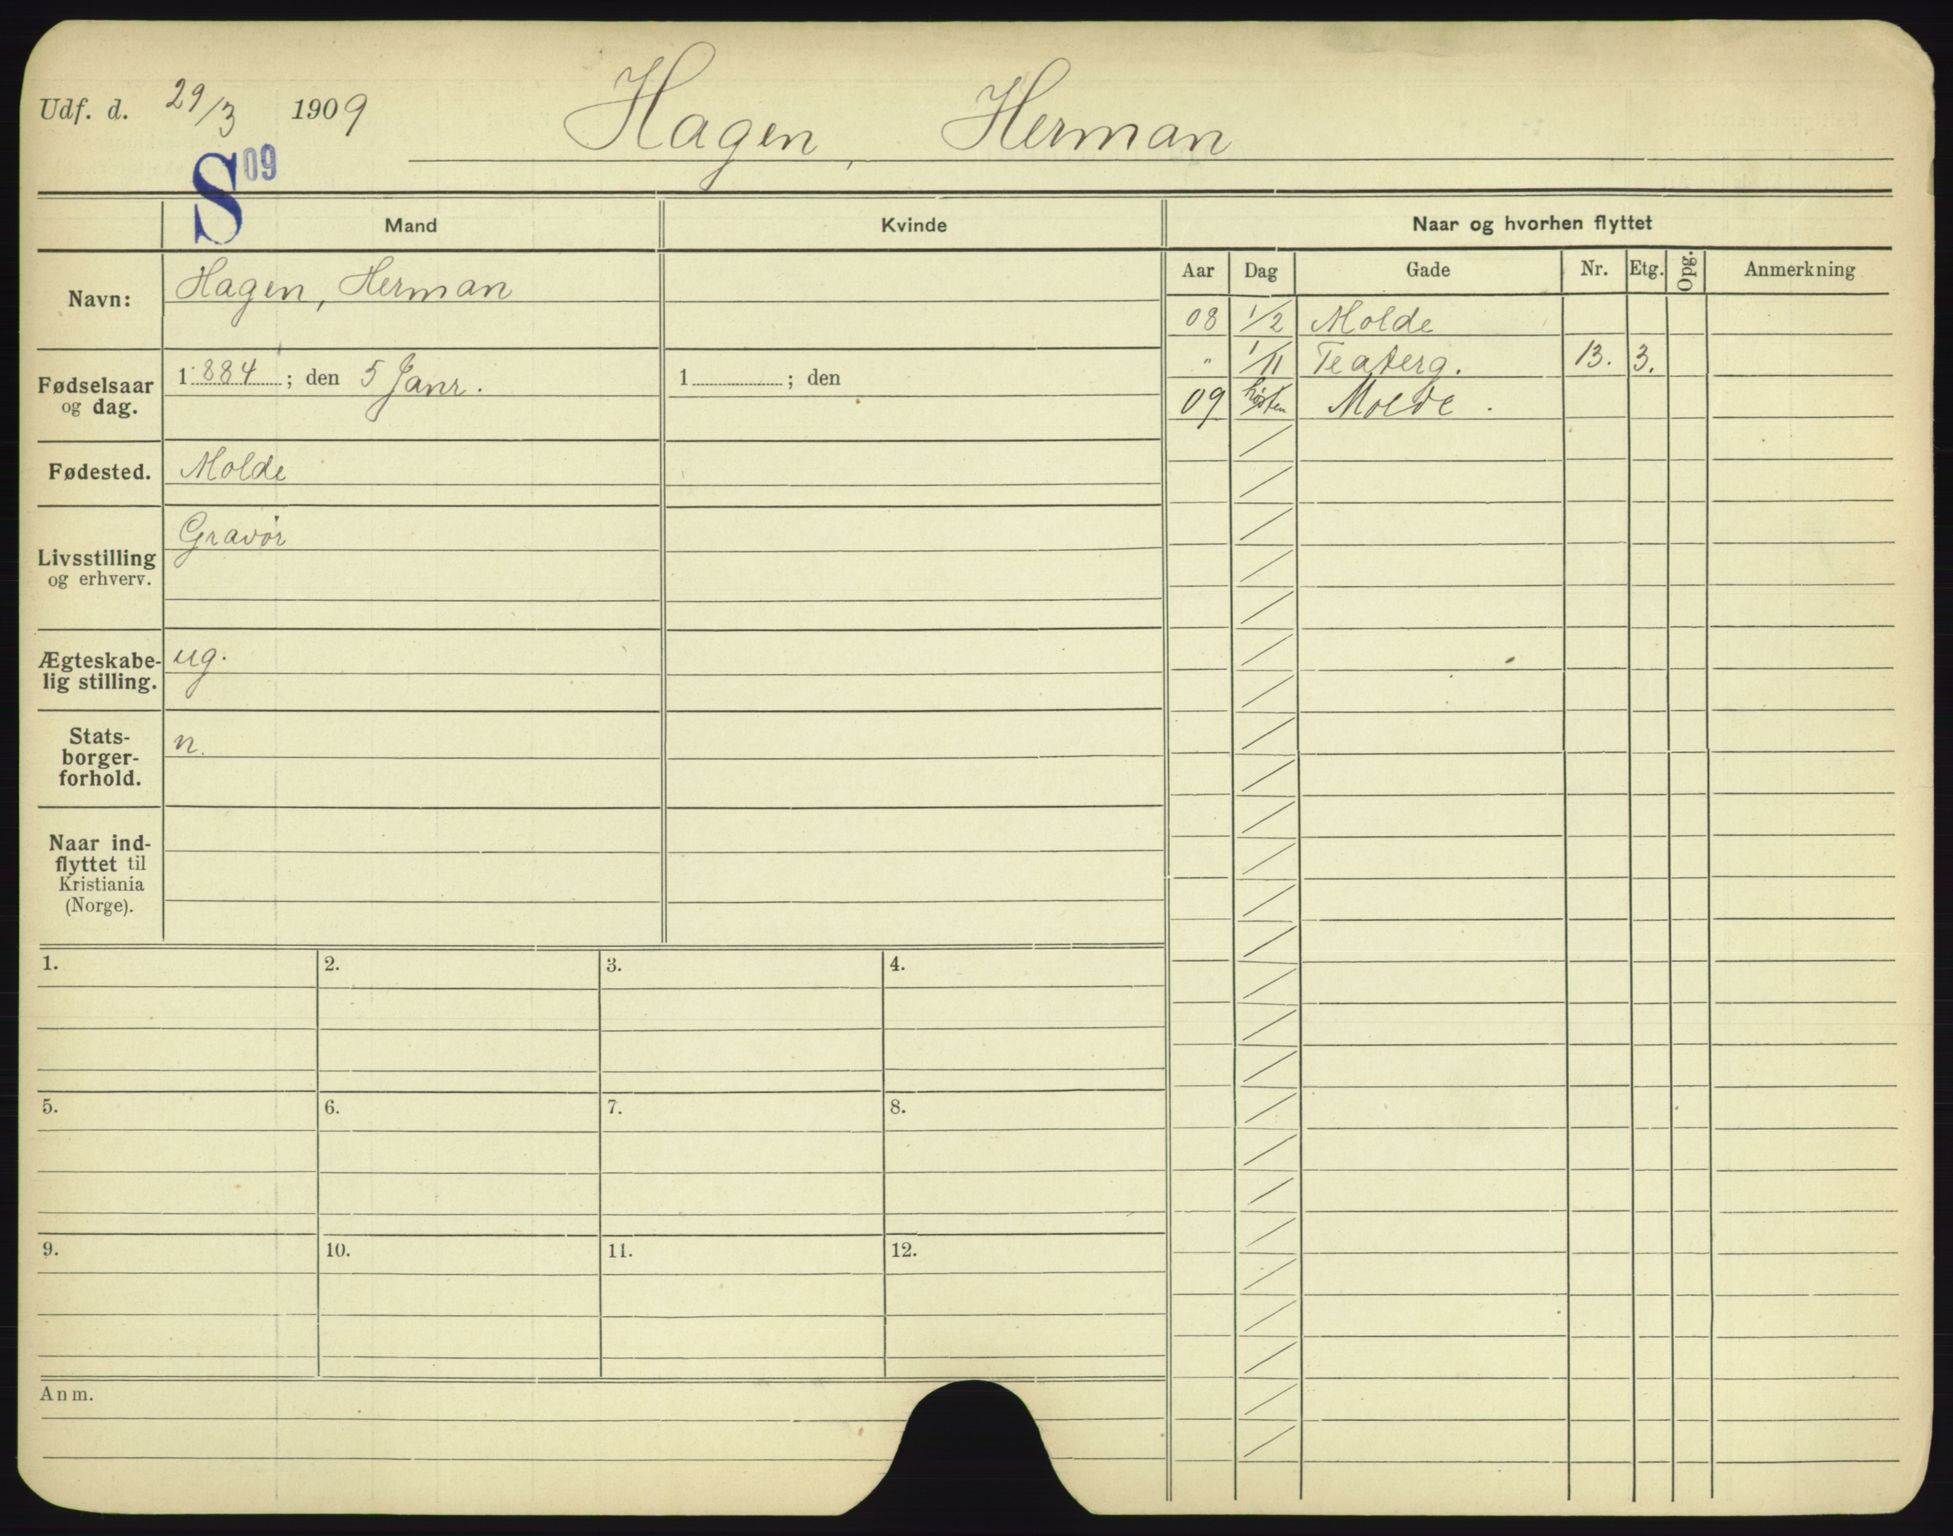 Udf. d. 29/3 1909 Hagen, Herman
S 09
Mand Kvinde Naar og hvorhen flyttet
Aar Dag Gade Nr. Etg. Opg. Anmerkning
Navn: Hagen, Herman
08 1/2 Molde
" 1/11 Teaterg. 13. 3.
Fødselsaar og dag. 1884; den 5 Janr. 1 ; den
09 høsten Molde.
Fødested. Molde
Livsstilling og erhverv. Gravør
Ægteskabe-
lig stilling. ug.
Stats-
borger-
forhold. n.
Naar ind-
flyttet til
Kristiania
(Norge).
1. 2. 3. 4.
5. 6. 7. 8.
9. 10. 11. 12.
Anm.